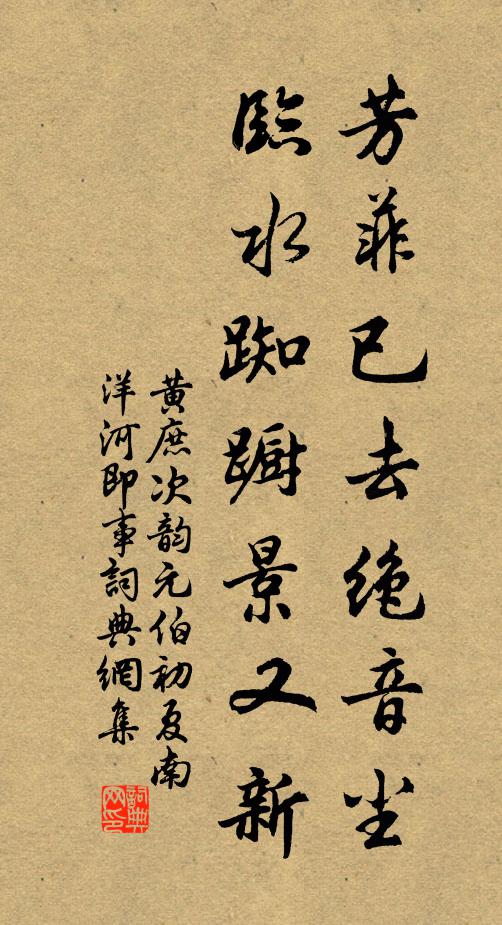 芳菲已去绝音尘
临水踟蹰景又新
黄庶次韵元伯初夏南
洋河即事词典网集
词典网印